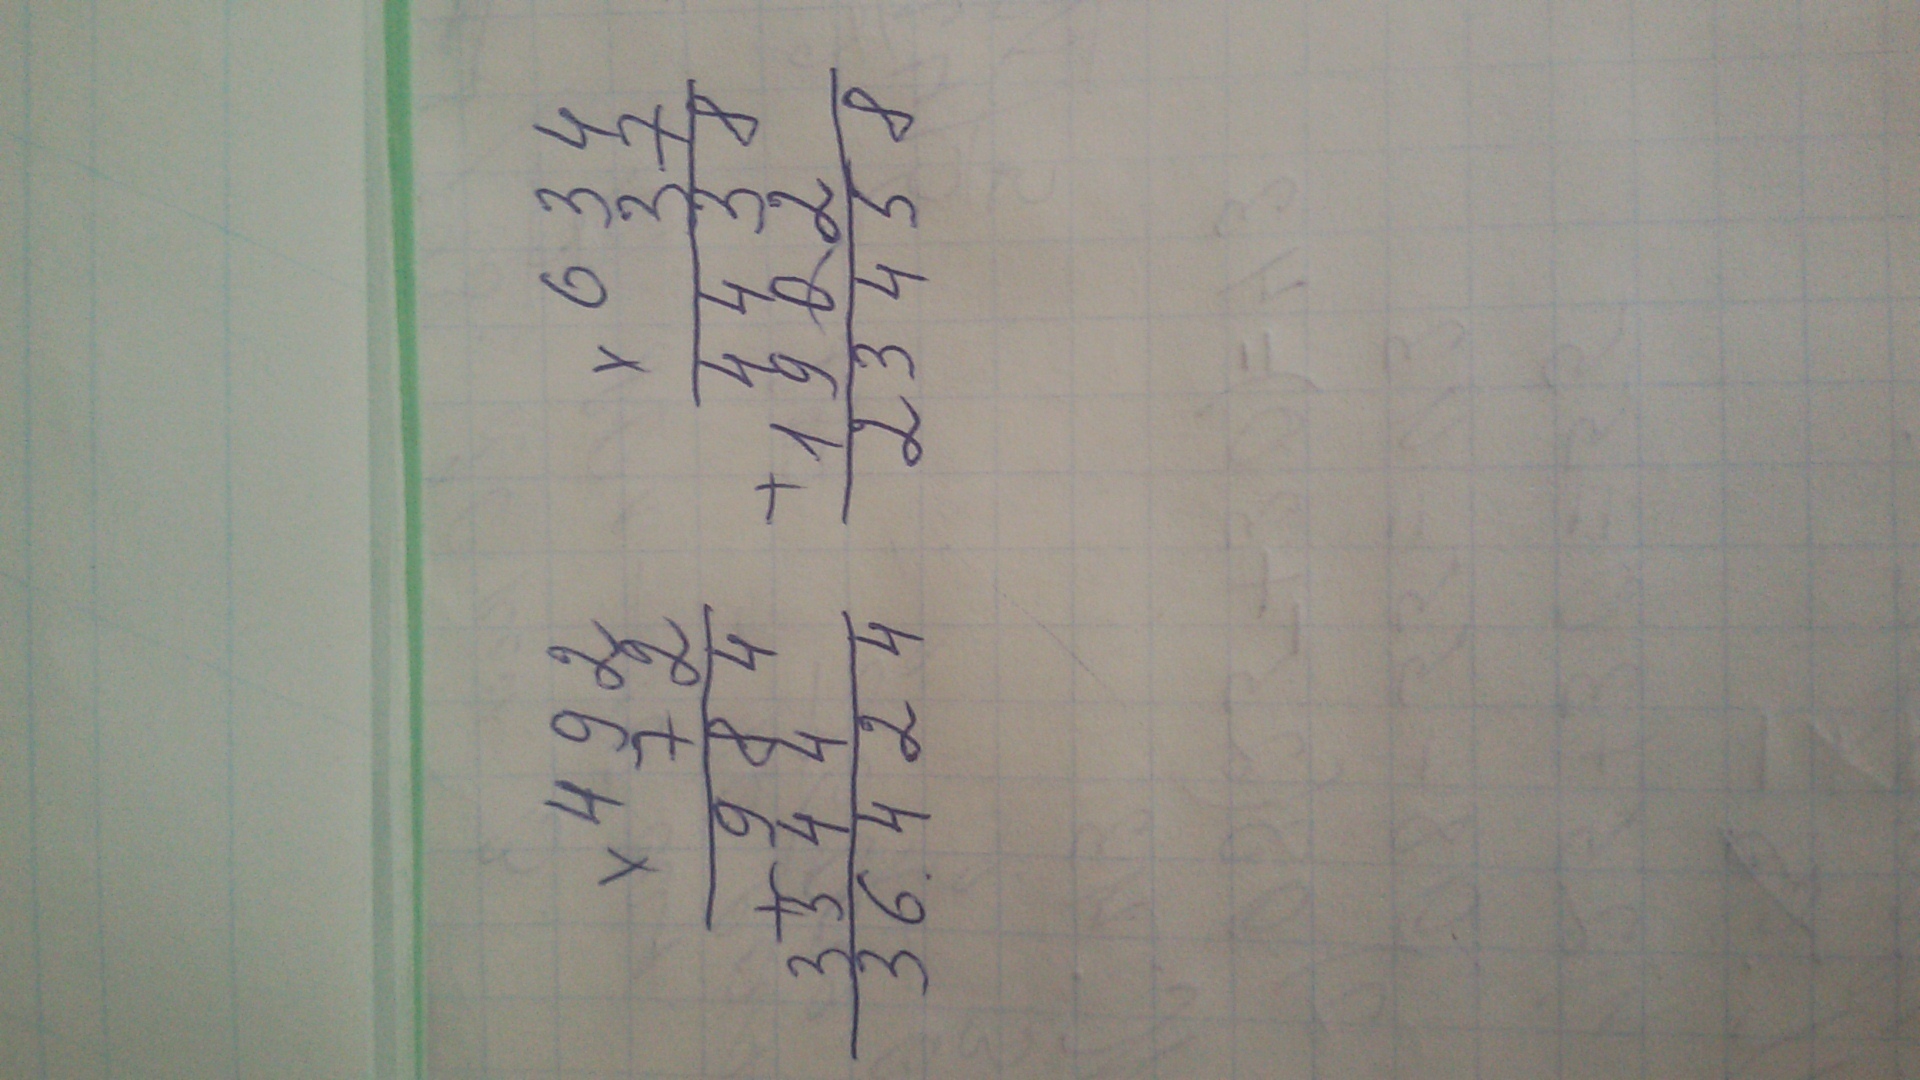 × 4 9 2
7 2
9 8 4
+
3 5 4 4
3 6 4 2 4
× 6 3 4
3 7
4 4 3 8
+ 1 9 0 2
2 3 4 5 8